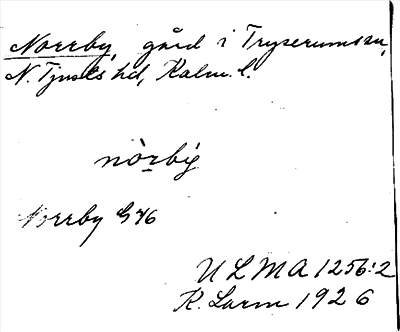 Norrby, gård i Tryserums sn,
N. Tjusts hd, Kalm. l.
nòrbý
Norrby G46
ULMA 1256:2
R. Larm 1926